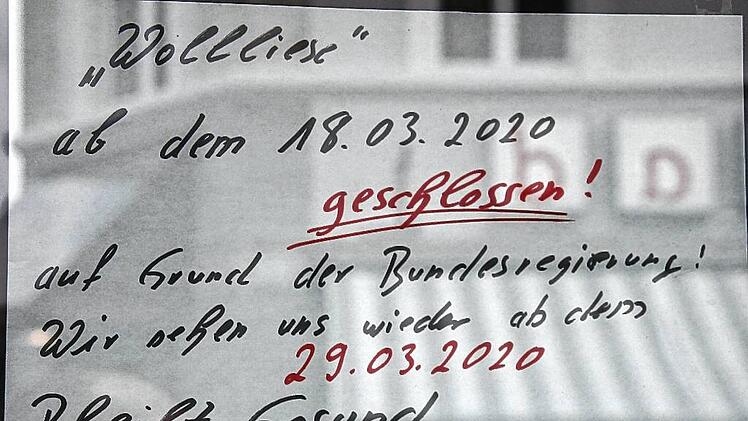 „Wollliese“
ab dem 18.03.2020
geschlossen!
auf Grund der Bundesregierung!
Wir sehen uns wieder ab dem
29.03.2020
Bleibt Gesund